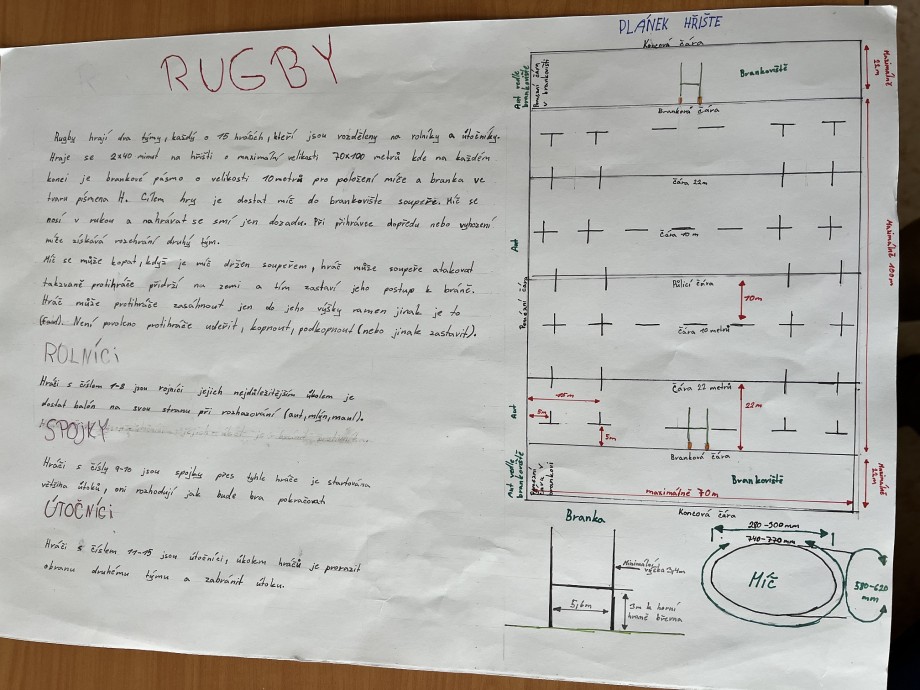 RUGBY
Rugby hrají dva týmy, každý o 15 hráčích, kteří jsou rozděleny na rolníky a útočníky.
Hraje se 2x40 minut na hřišti o maximální velikosti 70x100 metrů kde na každém
konci je brankové pásmo o velikosti 10metrů pro položení míče a branka ve
tvaru písmena H. Cílem hry je dostat míč do brankoviště soupeře. Míč se
nosí v rukou a nahrávat se smí jen dozadu. Při přihrávce dopředu nebo vyhození
míče získává rozehrání druhý tým.
Míč se může kopat, když je míč držen soupeřem, hráč může soupeře atakovat
takzvaně protihráče přidrží na zemi a tím zastaví jeho postup k bráně.
Hráč může protihráče zasáhnout jen do jeho výšky ramen jinak je to
(Faul). Není povoleno protihráče udeřit, kopnout, podkopnout (nebo jinak zastavit).
ROLNÍCI
Hráči s číslem 1-8 jsou rojníci jejich nejdůležitějším úkolem je
dostat balón na svou stranu při rozhazování (aut, mlýn, maul).
SPOJKY
Hráči s čísly 9-10 jsou spojky přes tyhle hráče je startována
většina útoků, oni rozhodují jak bude hra pokračovat
ÚTOČNÍCI
Hráči s číslem 11-15 jsou útočníci, úkolem hráčů je prorazit
obranu druhému týmu a zabránit útoku.
PLÁNEK HŘIŠTE
Koncová čára
Aut vedle
brankoviště
Pomezní čára
v brankovišti
Brankoviště
Maximálně
22m
Branková čára
čára 22m
Aut
čára 10 m
Maximálně 100m
Půlící čára
Pomezní čára
10m
čára 10 metrů
Čára 22 metrů
15m
22m
Aut
5m
5m
Branková čára
Aut vedle
brankoviště
Pomezní
čára v
brankoviš
Brankoviště
Maximálně
22m
maximálně 70m
Koncová čára
Branka
Minimální
výška 3,4m
5,6m
3m k horní
hraně břevna
280-300mm
740-770mm
Míč
580-620
mm